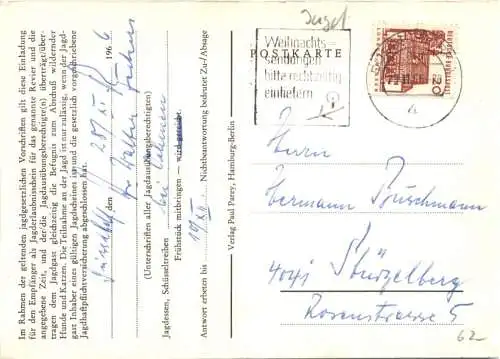 Jagd
Weihnachts-
sendungen
bitte rechtzeitig
einliefern
POSTKARTE
20
DEUTSCHE BUNDESPOST
Herrn
Hermann Brüschmann
4041 Stürzelberg
Rosenstrasse 5
62
Verlag Paul Parey, Hamburg-Berlin
Im Rahmen der geltenden jagdgesetzlichen Vorschriften gilt diese Einladung
für den Empfänger als Jagderlaubnisschein für das genannte Revier und die
angegebene Zeit, und der/die Jagdausübungsberechtigte(n) überträgt/über-
tragen dem Jagdgast gleichzeitig die Befugnis zum Abschuß wildernder
Hunde und Katzen. Die Teilnahme an der Jagd ist nur zulässig, wenn der Jagd-
gast Inhaber eines gültigen Jagdscheines ist und die gesetzlich vorgeschriebene
Jagdhaftpflichtversicherung abgeschlossen hat.
den 20. XI. 1966
(Unterschriften aller Jagdausübungsberechtigten)
Jagdessen, Schüsseltreiben bei
Frühstück mitbringen — wird gereicht.
Antwort erbeten bis 10/XII. Nichtbeantwortung bedeutet Zu-/Absage